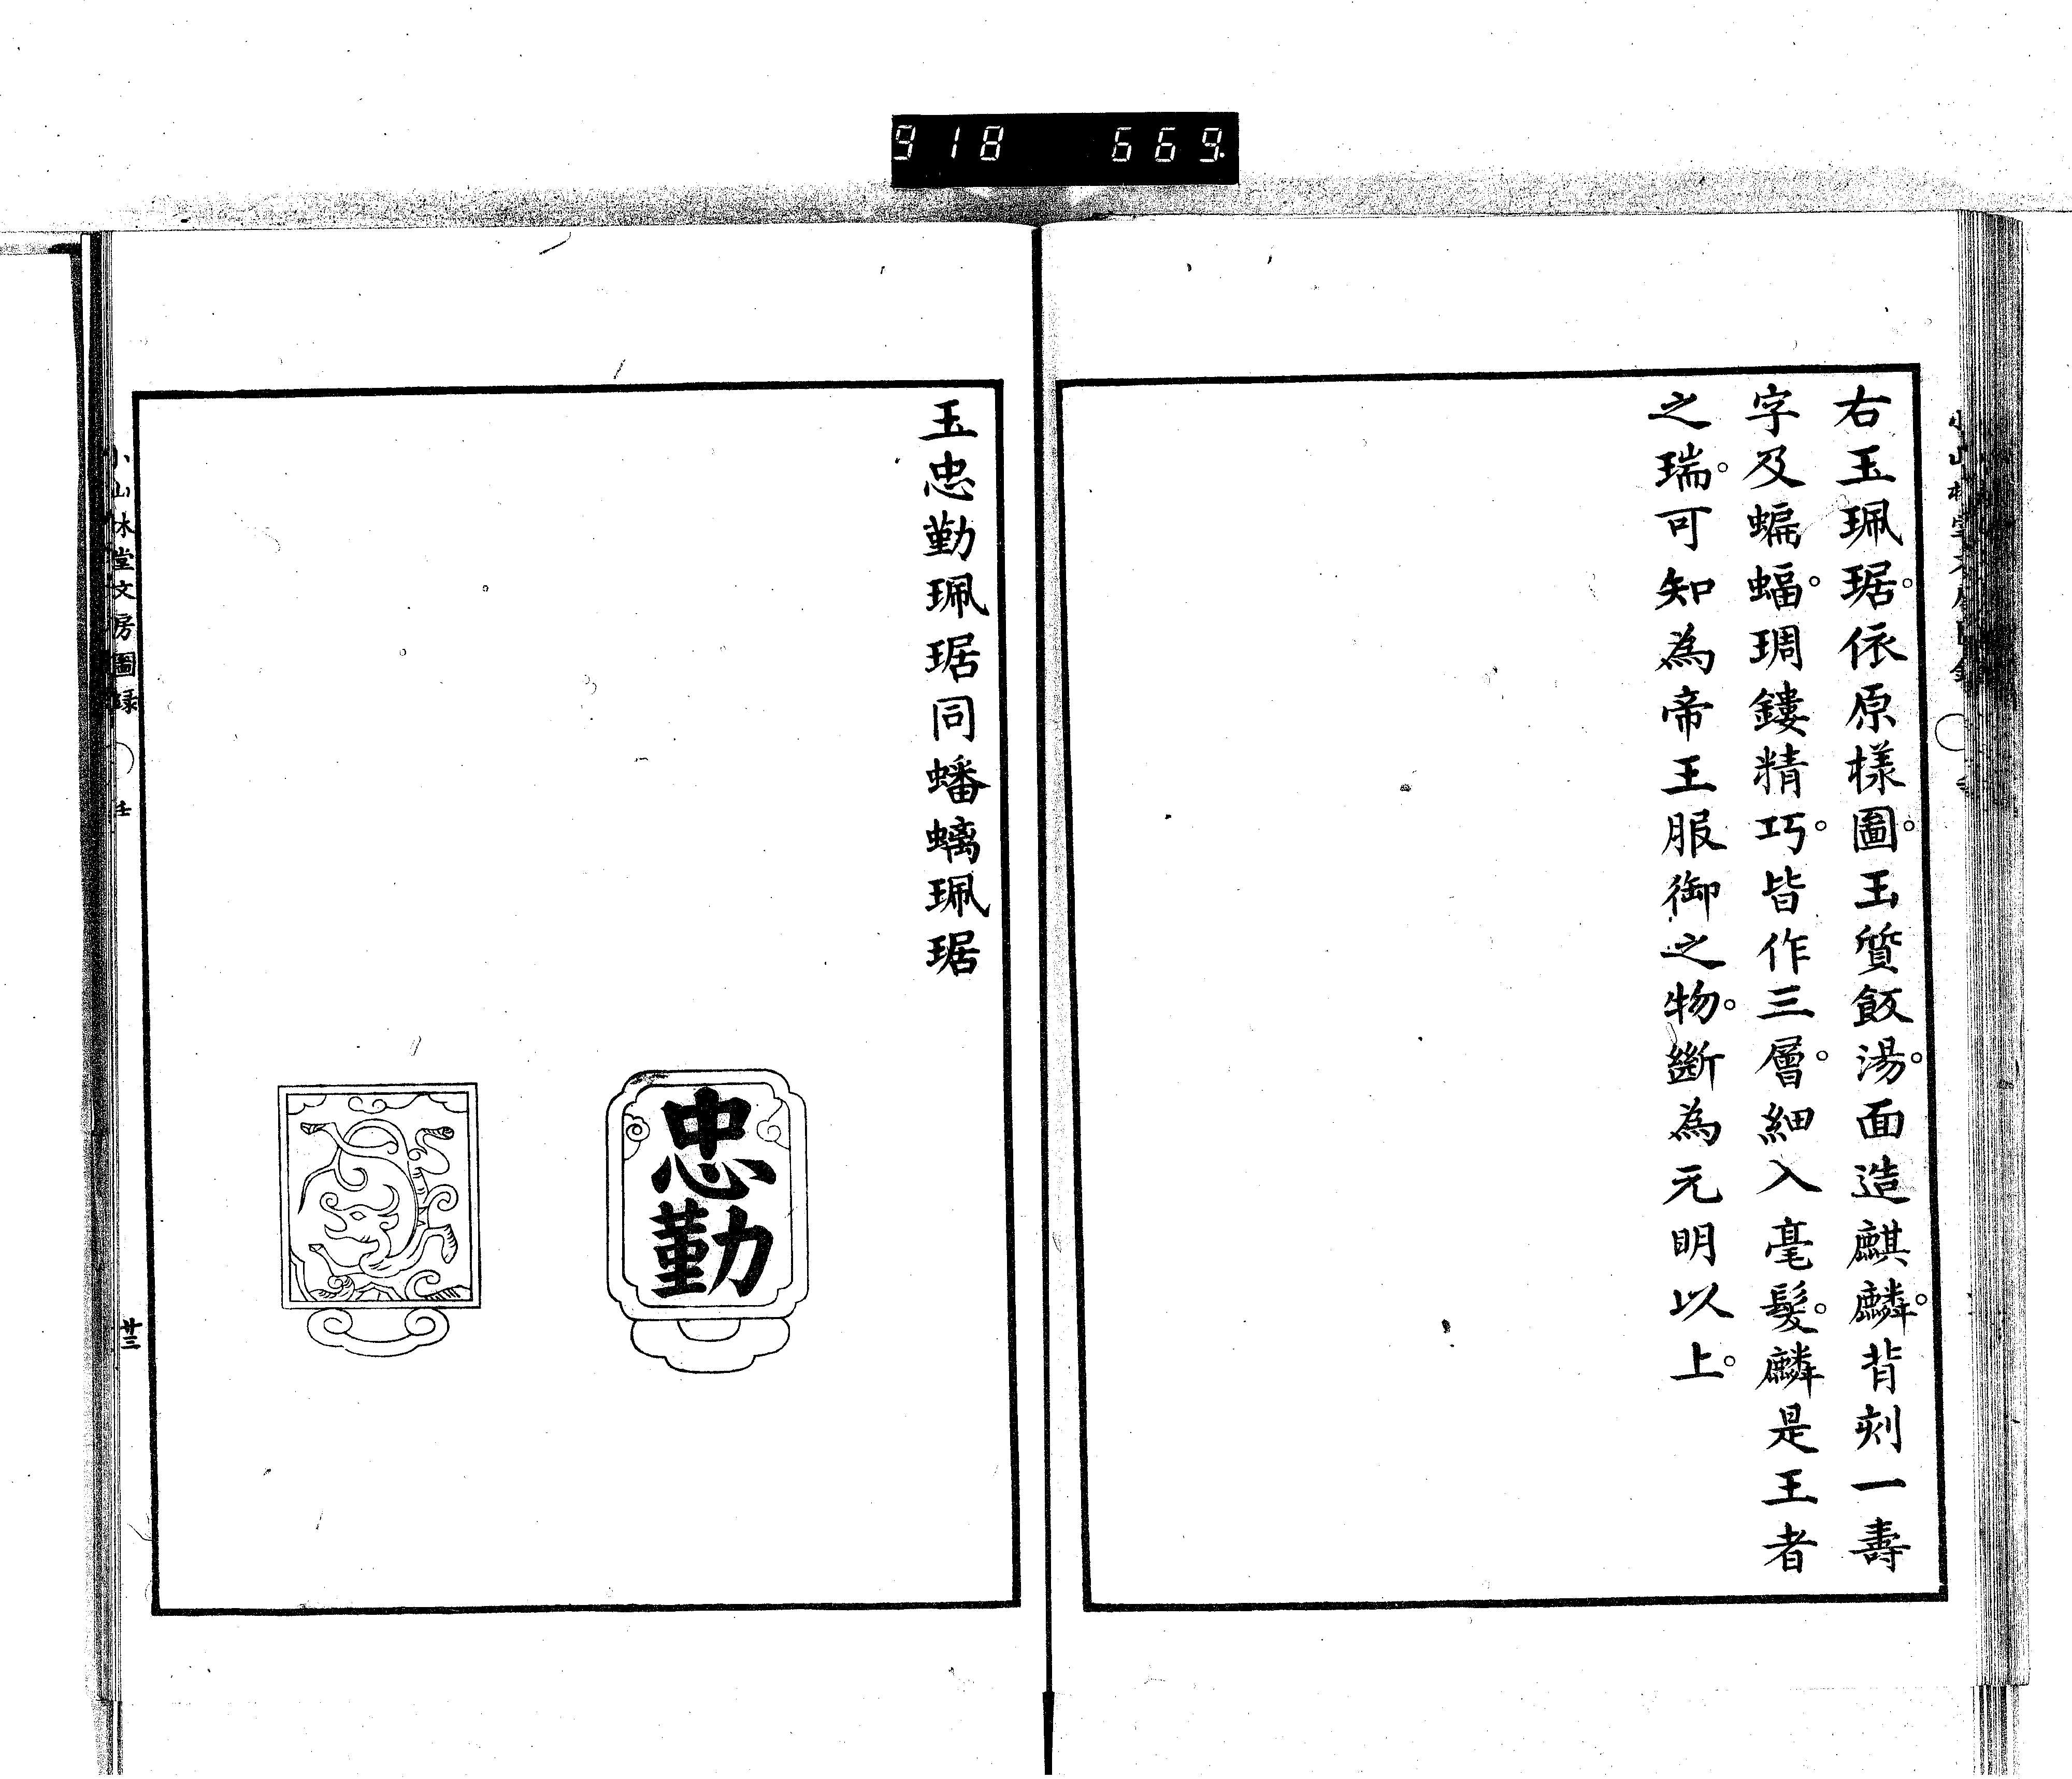 918 669.
右玉珮琚。依原樣圖。玉質飯湯。面造麒麟。背刻一壽
字及蝙蝠。琱鏤精巧。皆作三層。細入毫髮。麟是王者
之瑞。可知為帝王服御之物。斷為元明以上。
玉忠勤珮琚同蟠螭珮琚
忠勤
小山林堂文房圖錄
壬
廿三